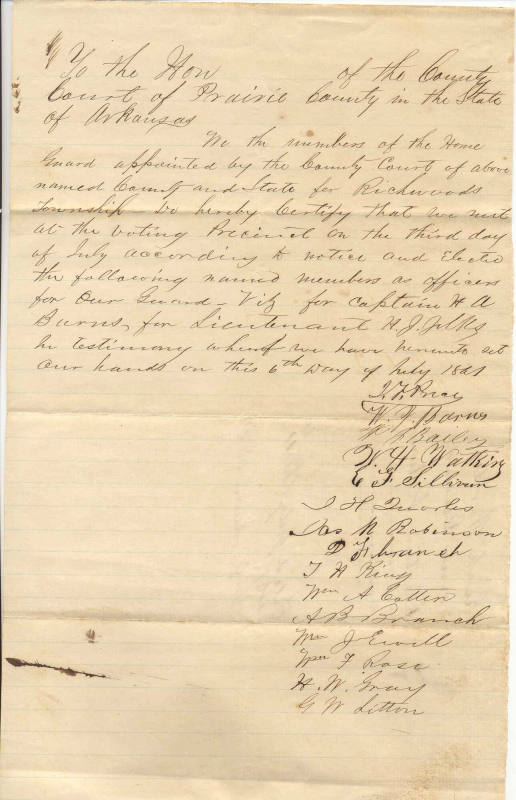 To the Hon of the County
Court of Prairie County in the State
of Arkansas
We the members of the Home
Guard appointed by the County Court of above
named County and State for Richwoods
Township Do hereby Certify that we met
at the voting Precinct on the third day
of July according to notice and Elected
the following named members as officers
for our Guard – Viz for Captain H A
Burns, for Lieutenant H. J. Jelks
In testimony whereof we have hereunto set
our hands on this 6th Day of July 1861
W. F. Barns
Bailey
W. H. Watkins
E F Sillivan
J H Quarles
Jas N Robinson
D F branch
T H King
Wm A Cotten
A B Branch
Wm J Ewell
Wm F Rose
H. W. Gray
G W Litton